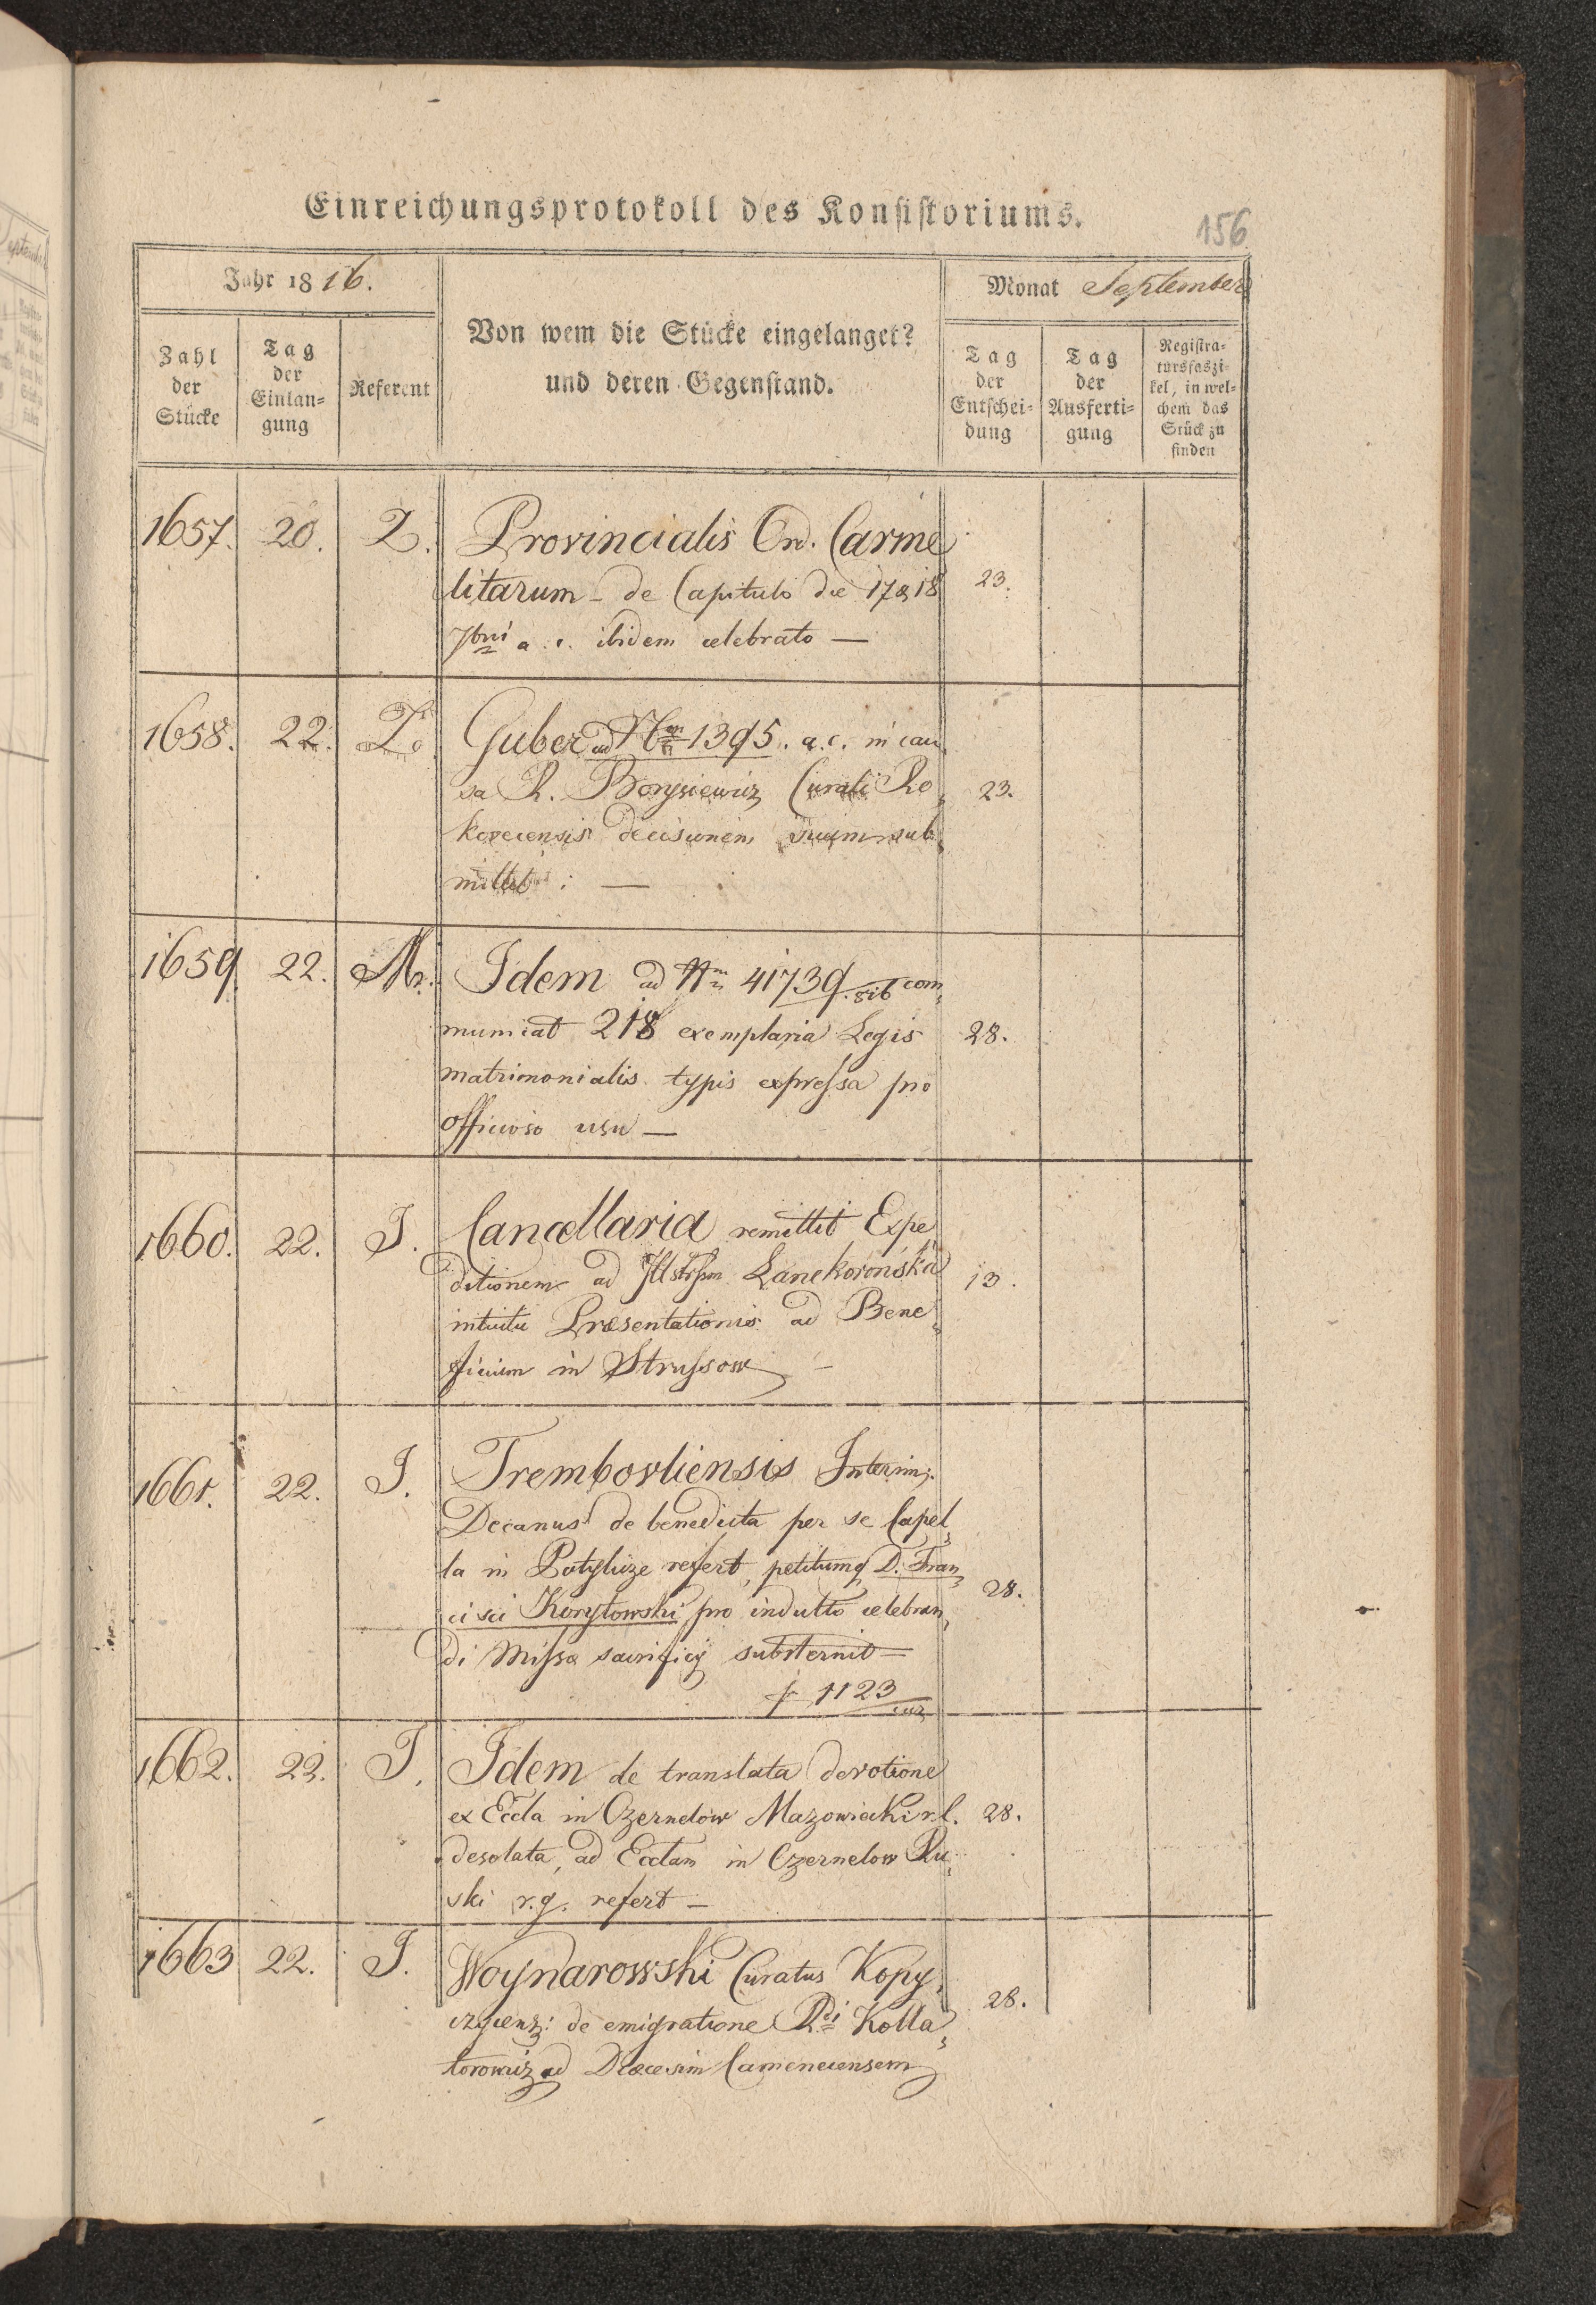 Einreichungsprotokoll des Konsistoriums.
156
Jahr 1816.
Monat September
Von wem die Stücke eingelanget?
und deren Gegenstand.
Zahl der Stücke
Tag der Einlan=gung
Referent
Tag der Entschei=dung
Tag der Ausferti=gung
Registra=tursfaszi=kel, in wel=chem das Stück zu finden
1657. 20. Z. Provincialis Ord. Carme
litarum – de Capitulo die 17 & 18 23.
7bris a. c. ibidem celebrato —
1658. 22. Z. Guber ad Nrm 1395. a.c. in cau
sa R. Borysiewicz Curati Ro 23.
kopecensis decisionem suam sub
mittit. —
1659 22. M. Idem ad Nrm 41739. com
municat 218 exemplaria Legis 28.
matrimonialis typis expressa pro
officioso usu —
1660. 22. J. Cancellaria remittit Expe
ditionem ad Illstrssm Lanckorońska 13.
intuitu Præsentationis ad Bene
ficium in Strussow –
1661. 22. J. Trembovliensis Interim.
Decanus de benedicta per se Capel
la in Potylicze refert, petitumq D. Fran
cisci Korytowski pro indulto celebran 28.
di Missæ sacrificij substernit —
f 1123
1662. 22. J. Idem de translata devotione
ex Eccla in Czernelow Mazowiecki r.l. 28.
desolata, ad Ecclam in Czernelow Ru
ski r.g. refert —
1663 22. J. Woynarowski Curatus Kopy
czyienz: de emigratione Rdi Kolla 28.
torowicz ad Diœcesim Camenecensem